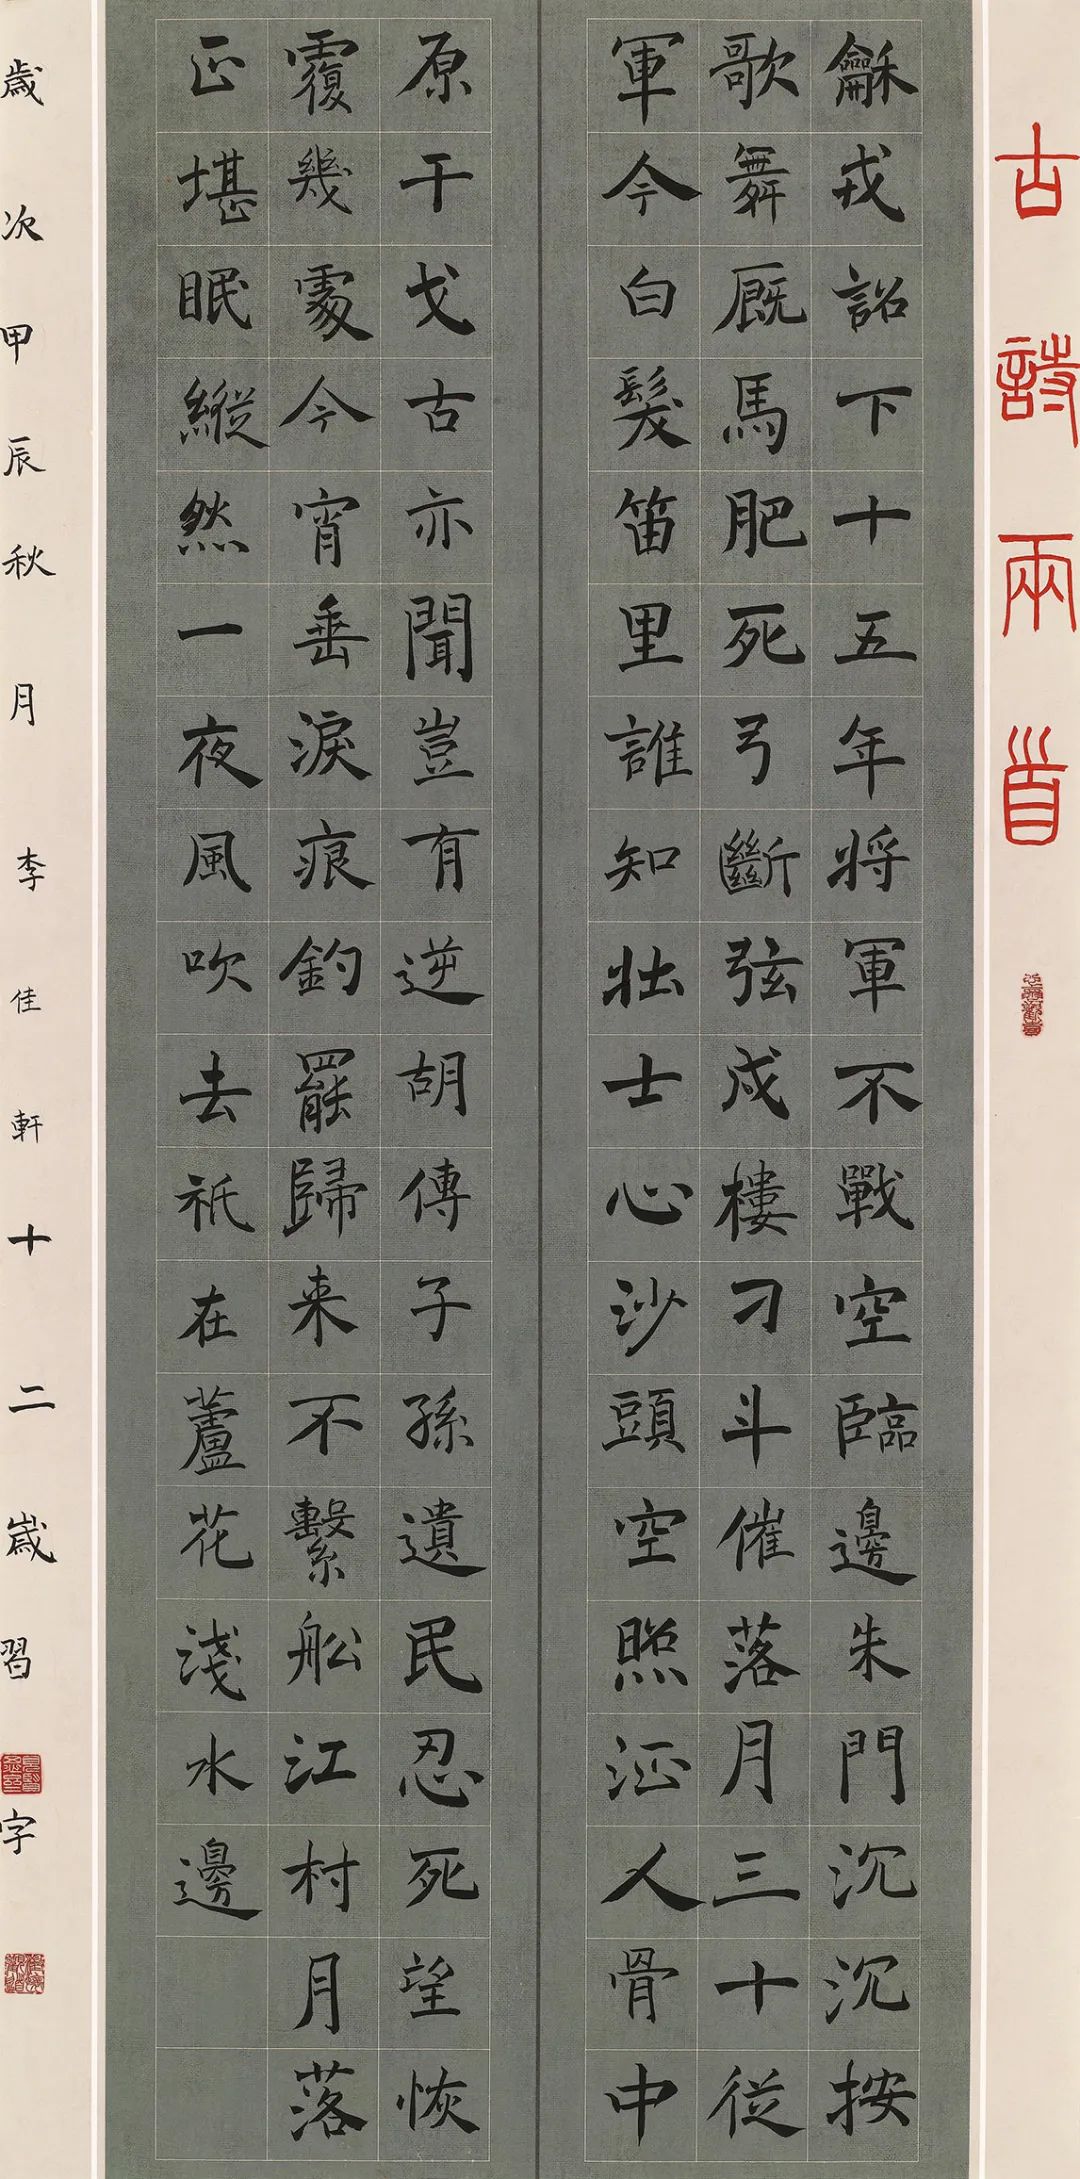 古詩兩首
龢戎詔下十五年将軍不戰空臨邊朱門沉沉按
歌舞厩馬肥死弓斷弦戍樓刁斗催落月三十従
軍今白髮笛里誰知壯士心沙頭空照征人骨中
原干戈古亦聞豈有逆胡傳子孫遺民忍死望恢
覆幾處今宵垂淚痕釣罷歸来不繫船江村月落
正堪眠縱然一夜風吹去衹在蘆花淺水邊
歲次甲辰秋月李佳軒十二歲習字